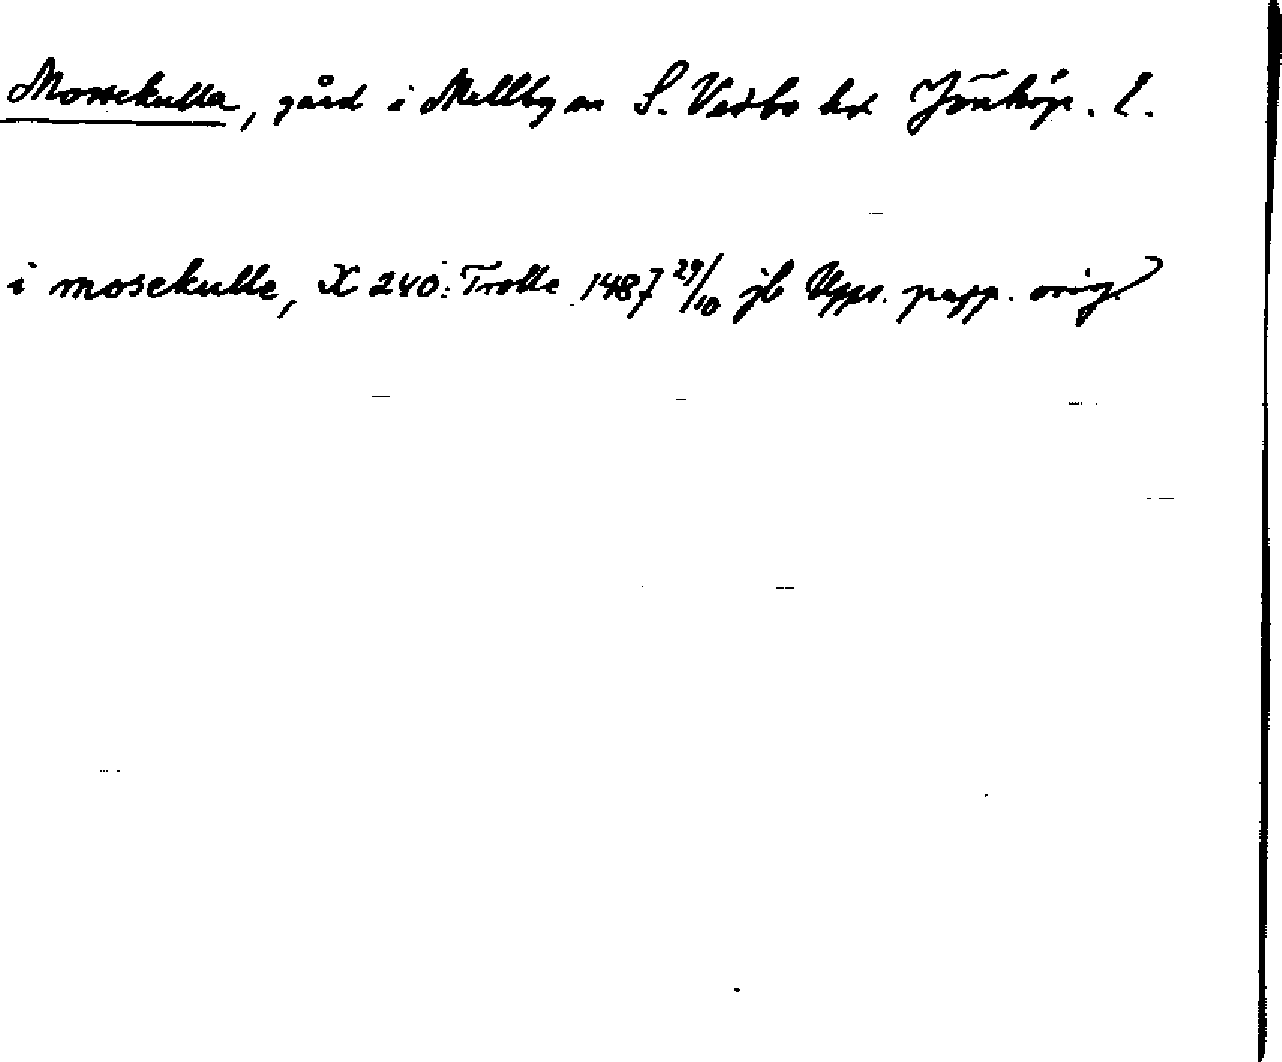 Mossekulla, gård i Mellby sn S. Vedbo hd Jönköp. l.
i mosekulle, X 240: Trolle 1487 29/10 jb Upps. papp. orig.